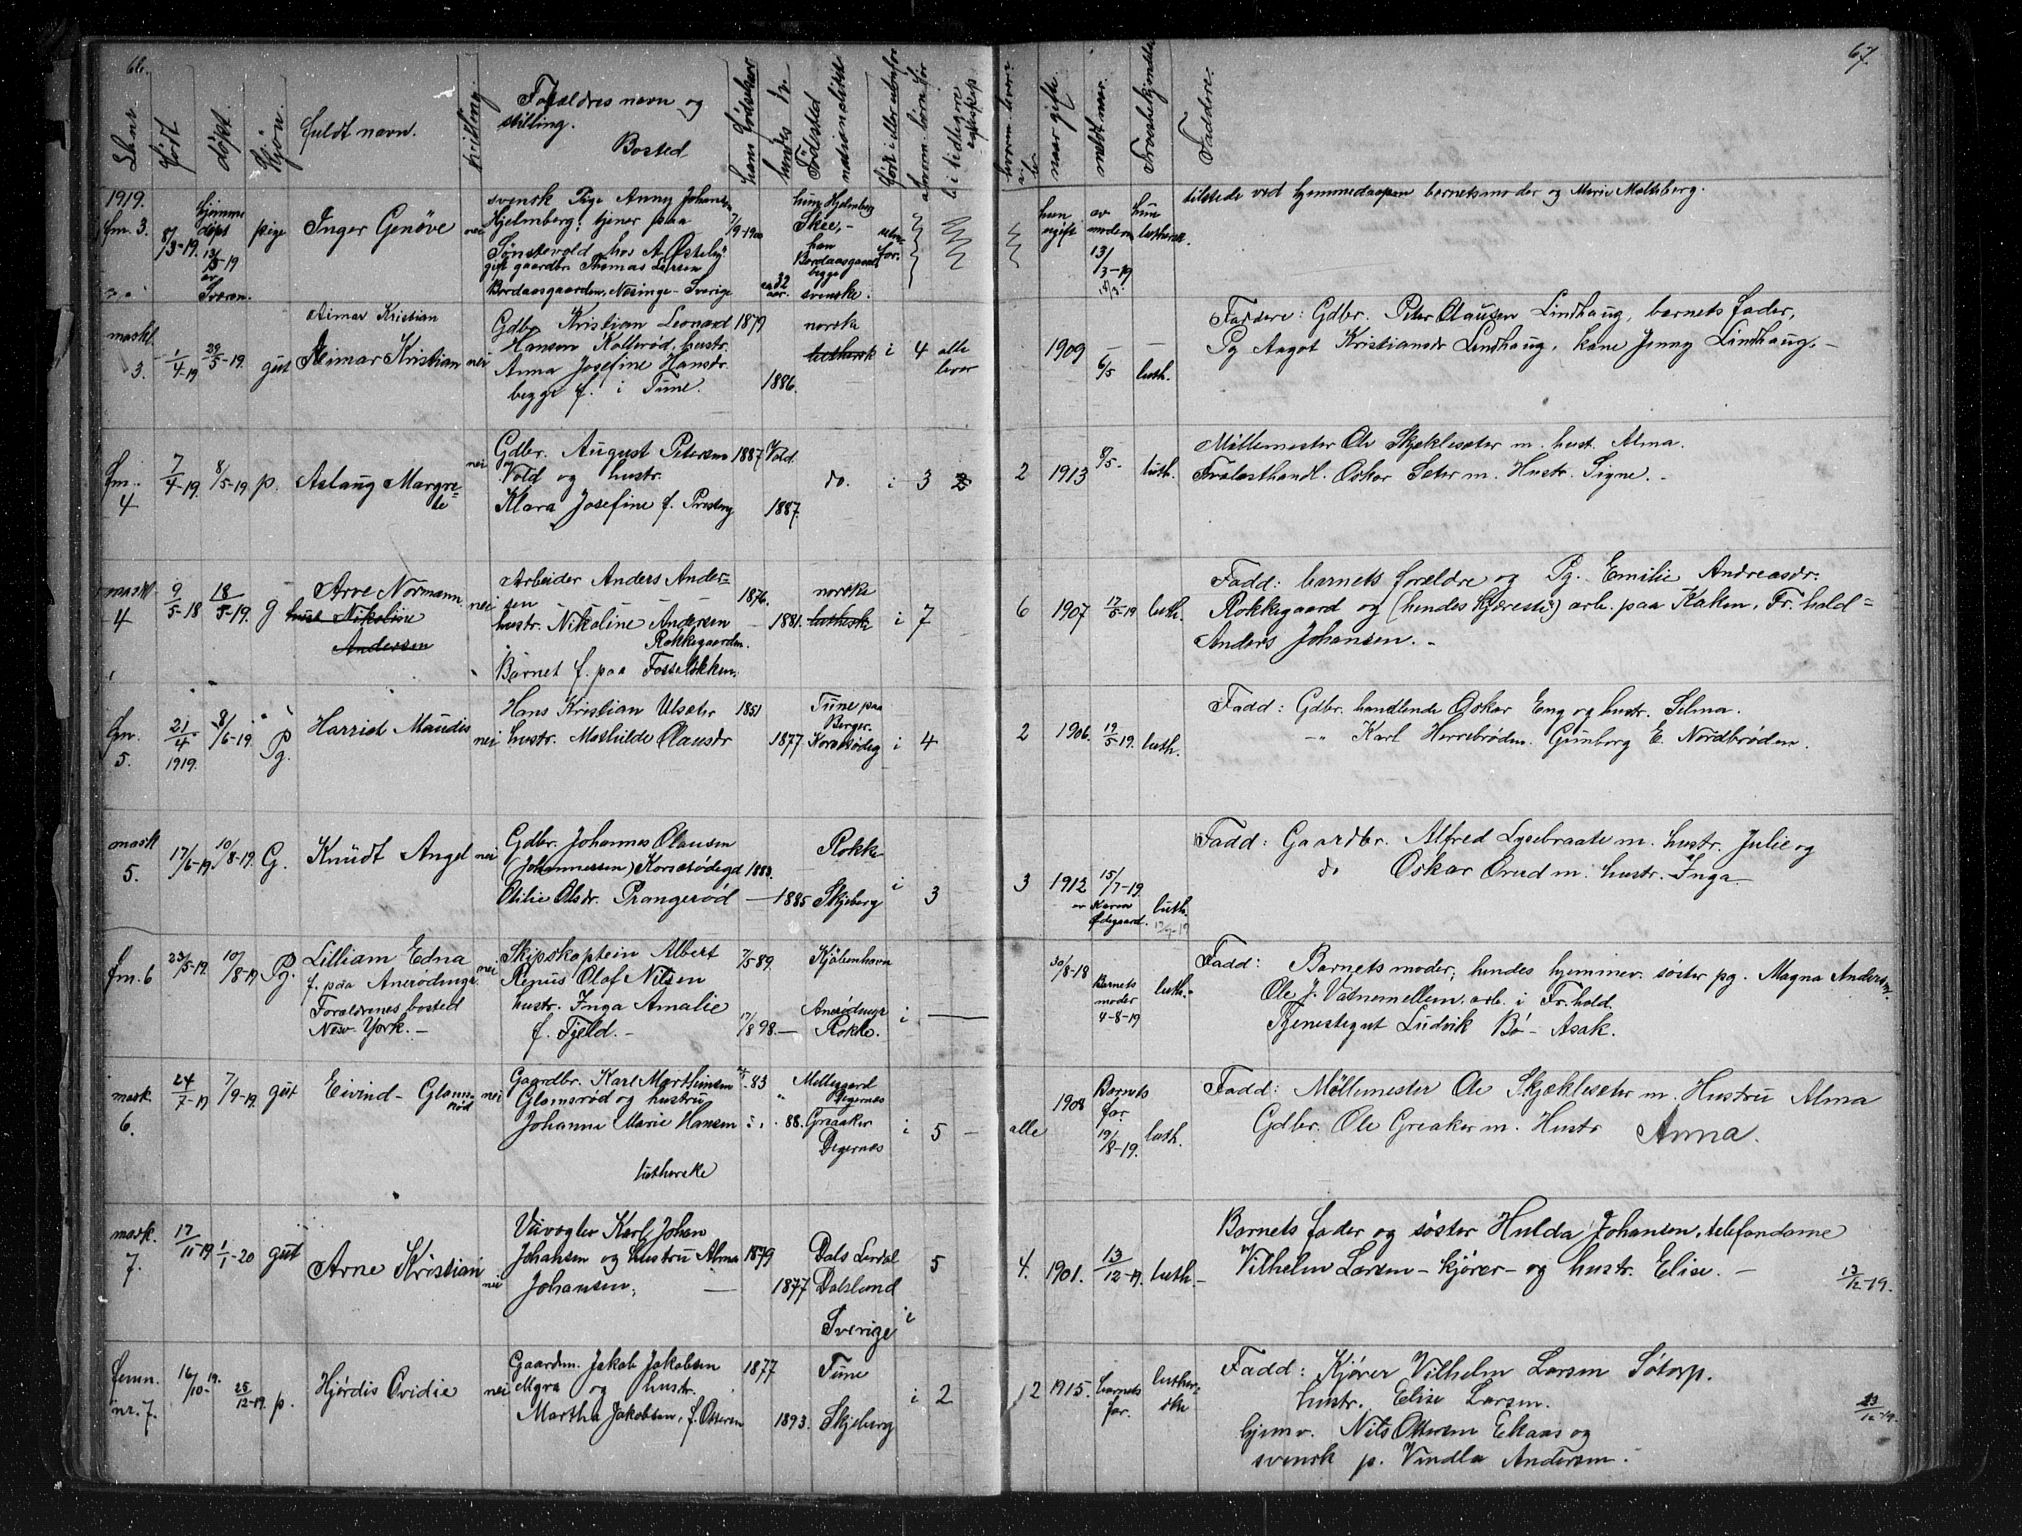 66.
Lb.nr
Født
døpt
Kjøn.
fuldt navn.
tvilling
Forældres navn og
stilling.
Bosted
hans fødselsaar
hendes do.
Fødested
nationalitet
før i eller utenfor
tidligere
ekteskap
1919.
fm. 3.
8/3-19.
hjemme
døpt
13/3-19
av
pige
Inger Genöve
nei
svensk Pige Anny Johansen
Hjelmberg, tjener paa
Tönstevold hos A. Østeby
gift gaardbr. Thomas Larsen
Bordaasgaarden, Næsinge - Sverige
7/9-1900
ca 32 aar.
hun: Hjelmberg
Skee, -
han
Bordaasgaard
begge
svenske.
utenfor.
maskl
3.
1/4-19
29/5-19.
gut
Aimar Kristian
Aimar Kristian
nei
Gdbr. Kristian Leonard
Hansen Kolbrød, hustr.
Anna Josefine Hansdr.
begge f. i Tune.
1879
1886.
norske
luthersk
i
4
alle
lever
fm.
4
7/4-19.
8/5-19
p.
Aslaug Margre=
te
nei
Gdbr. August Petersen
Vold og hustr.
Klara Josefine f. Presteng
1887
1887.
Vold.
do.
i
3
maskl
4
9/5-18
18/5-19.
g
Arve Normann
hust Nikoline
Andersen
nei
Arbeider Anders Ander=
sen
hustr. Nikoline Andersen
Rokkegaarden.
Barnet f. paa Fosseløkken.
1876.
1881.
norske
lutherske
i
7
fm.
5.
21/4
1919.
8/6-19.
Pg.
Harried Maudis
nei
Hans Kristian Ulseter
hustr. Mathilde Olausdr
1851
1877
Tune paa
Berger.
Korsesødeg
i
4
mask
5.
17/6-19
10/8-19.
G.
Knudt Angel
nei
Gdbr. Johannes Olausen
(Johannessen) Korsesødegd
Otilie Olsdr. Prangerød
1883.
1885
Rokke
Skjeberg
i
3
fm. 6
23/5-19.
10/8-19
Pg.
Lilliam Edna
f. paa Anerødmyr
Forældrenes bosted
New-York. -
nei
Skipskaptein Albert
Renius Olaf Nilsen
hustr. Inga Amalie
f. Fjeld. -
7/5-89.
17/8 98.
Kjøbenhavn
Anerødmyr
Rokke.
i
mask.
6.
24/7-19
7/9-19.
gut
Eivind - Gloms=
rød
nei
Gaardbr. Karl Marthinsen
Glomsrød og hustru
Johanne Marie Hansen
lutherske
83
88.
Mellegaard
Degernes
Greaaker
Degernes
i
5
mask.
7.
17/11-19
1/1-20
gut
Arne Kristian
nei
Karl Johan
Johansen og hustru Alma
Johansen,
1879
1877
Dals Lerdal
Dalsland
Sverige
i
5
femn.
nr. 7.
16/10-19.
25/12-19.
p.
Hjørdis Ovidie
nei
Gaardm. Jakob Jakobsen
Myra og hustr.
Martha Jakobsen, f. Ottersen
1877
1893.
Tune
Skjeberg
i
2
67.
naar gift.
meldt naar.
Trosbekjendelse
Faddere.
hun
ugift
av
moderen
13/3-19
hun
luthersk.
tilstede ved hjemmedaapen barnets moder og Marie Malteberg.
1909
6/5
luth.
Faddere: Gdbr. Peter Olausen Lindhaug, barnets fader,
Pg Aagot Kristiansdr Lindhaug, kone Jenny Lindhaug. -
2
1913
8/5.
luth.
Møllemester Ole Skjækleseter m. hust. Alma.
Trælasthandl. Oskar Seter m. Hustr. Signe. -
6
1907
17/5-19
luth.
Fadd: barnets forældre og Pg. Emilie Andreasdr.
Rokkegaard og (hendes kjæreste) arb. paa Kaken, Fr.hald=
Anders Johansen. -
2
1906.
19/5-19.
luth.
Fadd: Gdbr. handlende Oskar Eng og hustr. Selma.
-"- Karl Herrebrøden. Gunborg E. Nordbrøden.
3
1912
15/7-19.
av Karen
Ødegaard.
luth.
Fadd: Gaardbr. Alfred Lysebraate m. hustr. Julie og
do Oskar Ørud m. hustr. Inga.
30/8-18
Barnets
moder
4-8-19
luth.
Fadd: Barnets moder; hendes hjemmev. søster pg. Magna Andersen.
Ole J. Vatnemellem. arb. i Fr.hold.
Tjenestegut Ludvik Bø - Asak.
alle
1908
Barnets
far
19/8-19.
luth.
Fadd: Møllemester Ole Skjækleseter m. Hustru Alma
Gdbr. Ole Greaker m. Hustr Anna.
4.
1901.
13/12-19.
luth-
Barnets fader og søster Hulda Johansen, telefondame
Vilhelm Larsen - kjører - og hustr. Elise. -
13/12-19.
2
1915.
barnets
far.
luther=
ske
Fadd: Kjører Vilhelm Larsen Søtorp.
hustr. Elise Larsen.
hjemv. Nils Ottersen Ekaas og
svensk p. Vindla Andersen.
23/12-19.